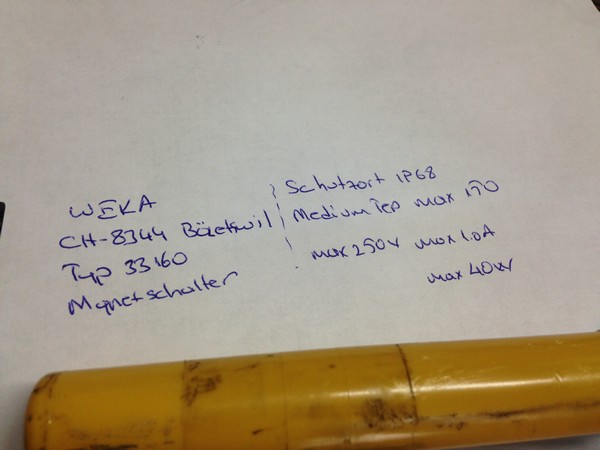 WEKA
CH-8344 Bäretswil
Typ 33160
Magnetschalter
Schutzart IP68
Medium Tep max 170
max 250V max 1.0A
max 40W